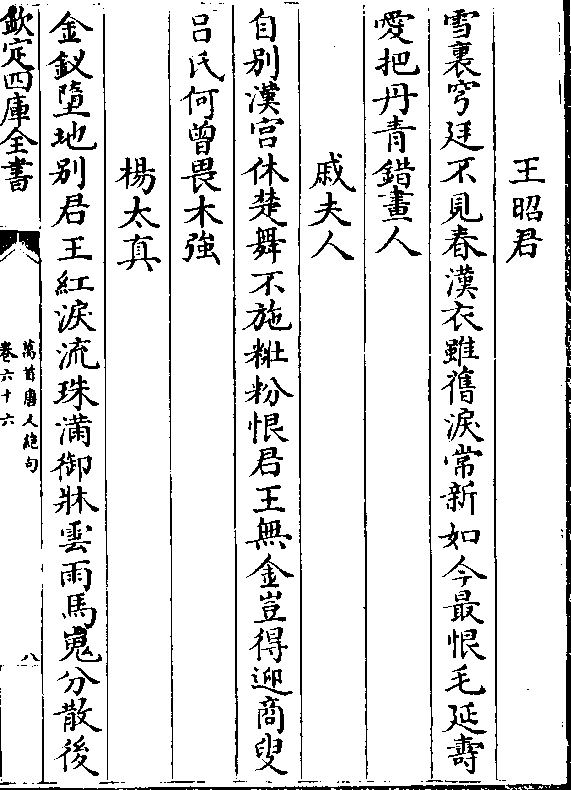 王昭君
雪裏穹廷不見春漢衣雖舊淚常新如今最恨毛延壽
愛把丹青錯畫人
戚夫人
自别漢宫休楚舞不施粧粉恨君王無金豈得迎商叟
吕氏何曾畏木強
楊太真
金釵墮地别君王紅淚流珠滿御牀雲雨馬嵬分散後
欽定四庫全書
萬首唐人絶句
卷六十六
八